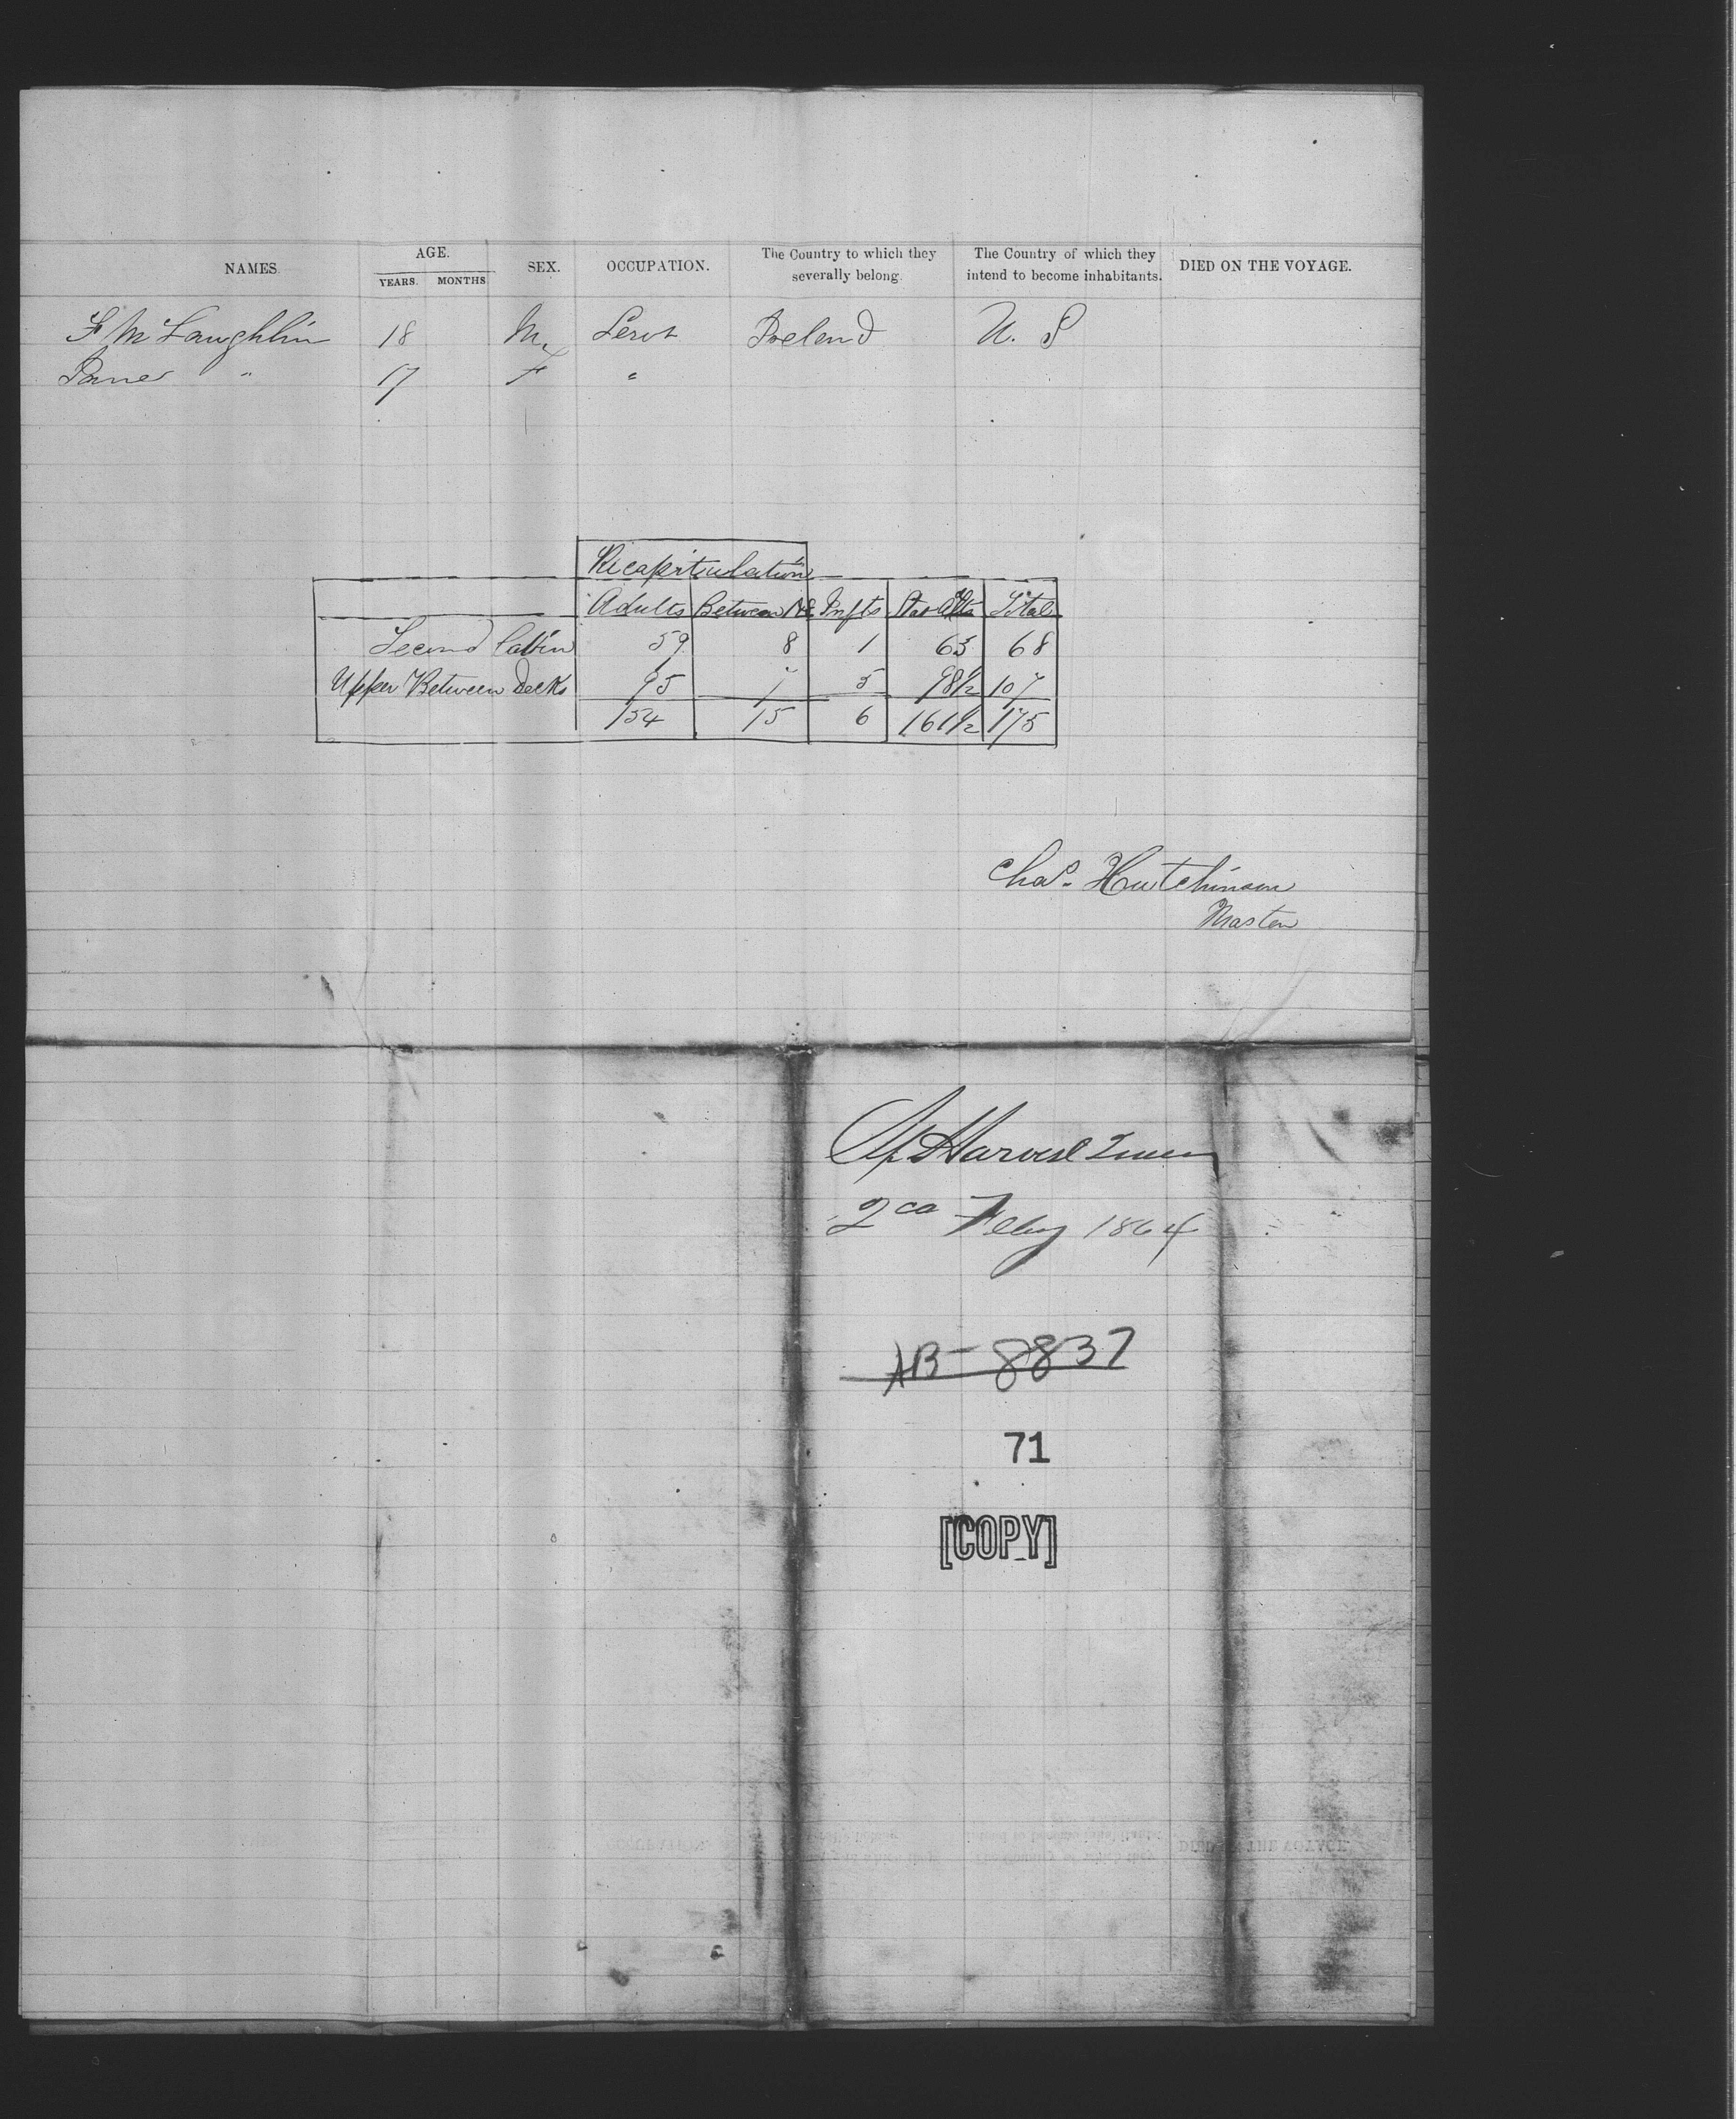 NAMES. AGE. SEX. OCCUPATION. The Country to which they severally belong. The Country of which they intend to become inhabitants. DIED ON THE VOYAGE.
YEARS. MONTHS
F McLaughlin 18 M. Servt Ireland U. S
" 17 F "
Recapitulation
Adults Between Infts Total
Second Cabin 59 8 1 63 68
Upper Between Decks 95 7 5 98½ 107
154 15 6 161½ 175
Chas. Hutchinson
Master
Sp Harvest Queen
Feby 1864
AB- 8837
71
[COPY]